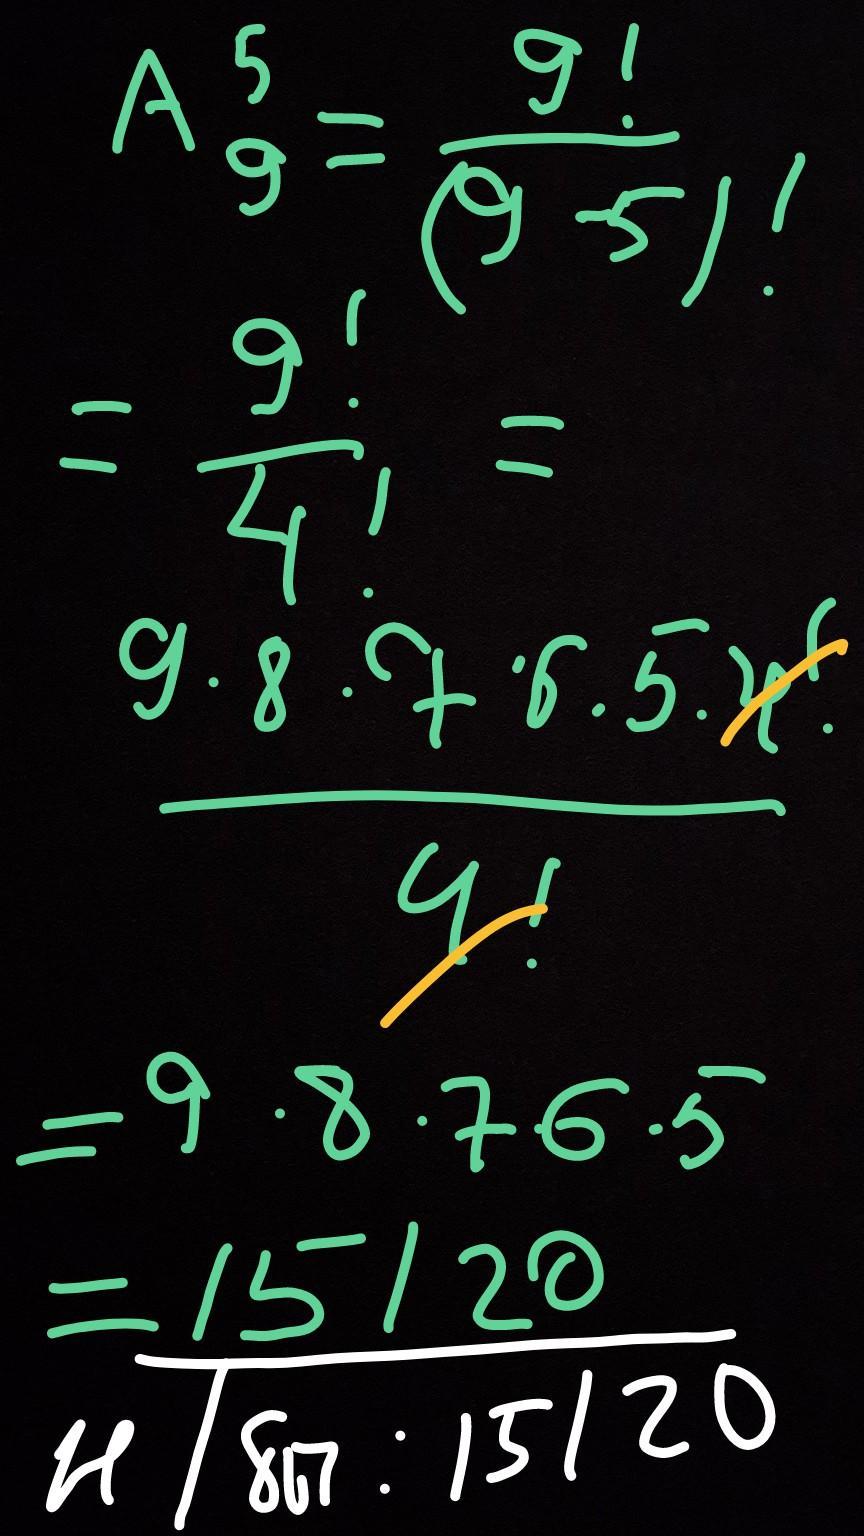 A⁵₉ = 9! / (9-5)!
= 9! / 4! =
9·8·7·6·5·4! / 4!
= 9·8·7·6·5
= 15120
: 15120